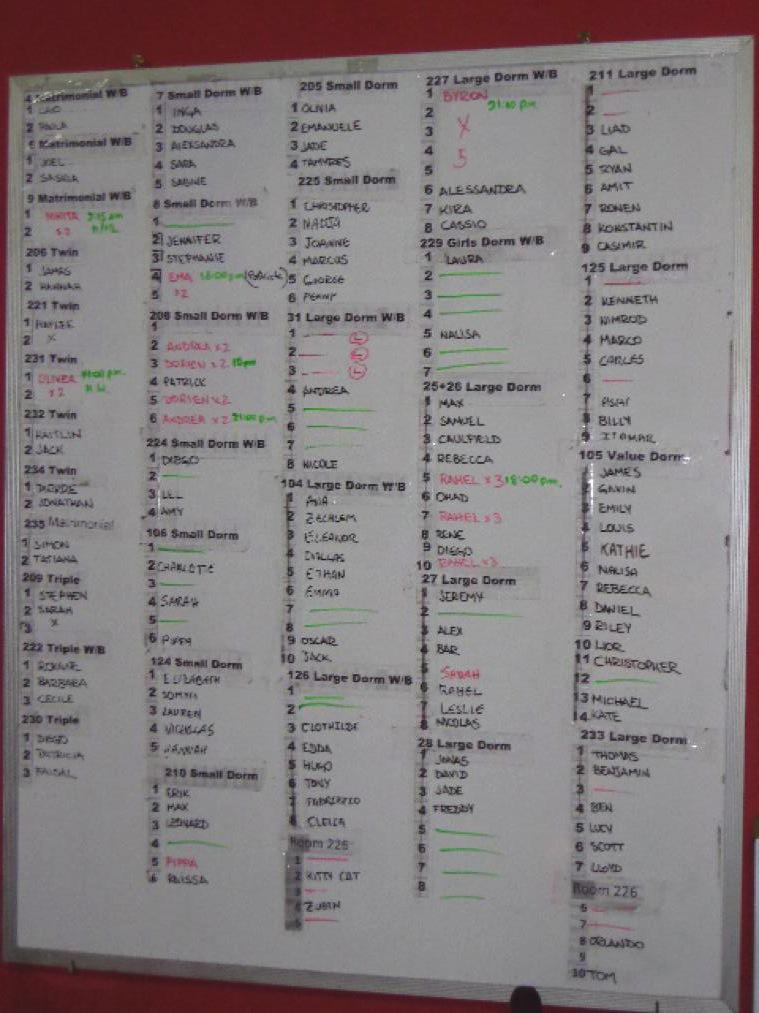 4 Matrimonial W/B
1 CAIO
2 PAOLA
Matrimonial W/B
1 JOEL
2 SASKIA
9 Matrimonial W/B
1 NIKITA
2 x2
206 Twin
1 JAMES
2 HANNAH
221 Twin
1
2 X
231 Twin
1 OLIVER
2 x2
232 Twin
1 KAITLIN
2 JACK
234 Twin
1
2 JONATHAN
235 Matrimonial
1 SIMON
2 TATIANA
209 Triple
1 STEPHEN
2 SARAH
3 X
222 Triple W/B
1
2 BARBARA
3 CECILE
230 Triple
1 DIEGO
2 PATRICIA
3 FAISAL
7 Small Dorm W/B
1 INGA
2 DOUGLAS
3 ALEKSANDRA
4 SARA
5 SABINE
8 Small Dorm W/B
1
2 JENNIFER
3 STEPHANIE
4 EMA 18:00pm
5 x2
208 Small Dorm W/B
1
2 ANDREA x2
3 DORIEN x2
4 PATRICK
5 DORIEN x2
6 ANDREA x2 21:00 pm
224 Small Dorm W/B
1 DIEGO
2
3 LEL
4 AMY
106 Small Dorm
1
2 CHARLOTTE
3
4 SARAH
5
6
124 Small Dorm
1 ELIZABETH
2
3 LAUREN
4 NICHOLAS
5 HANNAH
210 Small Dorm
1 ERIK
2 MAX
3 LEONARD
4
5 PIPPA
6 RAISSA
205 Small Dorm
1 OLIVIA
2 EMANUELE
3 JADE
4 TAMYRES
225 Small Dorm
1 CHRISTOPHER
2 NADIA
3 JOANNE
4 MARCUS
5 GEORGE
6 PENNY
31 Large Dorm W/B
1 L
2 L
3 L
4 ANDREA
5
6
7
8 NICOLE
104 Large Dorm W/B
1 ANA
2
3 ELEANOR
4 DALLAS
5 ETHAN
6 EMMA
7
8
9 OSCAR
10 JACK
126 Large Dorm W/B
1
2
3 CLOTHILDE
4 EDDA
5 HUGO
6 TONY
7 FABRIZIO
8 CLELIA
Room 226
1
2 KITTY CAT
3
4 ZUBIN
5
227 Large Dorm W/B
1 BYRON
2 21:00 pm
3 X
4 5
5
6 ALESSANDRA
7 KIRA
8 CASSIO
229 Girls Dorm W/B
1 LAURA
2
3
4
5 NALISA
6
7
25+26 Large Dorm
1 MAX
2 SAMUEL
3 CAULFIELD
4 REBECCA
5 RAHEL x3 18:00pm
6 OHAD
7 RAHEL x3
8 RENE
9 DIEGO
10 RAHEL x3
27 Large Dorm
1 JEREMY
2
3 ALEX
4 BAR
5 SARAH
6 RAHEL
7 LESLIE
8 NICOLAS
28 Large Dorm
1 JONAS
2 DAVID
3 JADE
4 FREDDY
5
6
7
8
211 Large Dorm
1
2
3 LIAD
4 GAL
5 RYAN
6 AMIT
7 RONEN
8 KONSTANTIN
9 CASIMIR
125 Large Dorm
1
2 KENNETH
3 NIMROD
4 MARCO
5 CARLES
6
7 ASAF
8 BILLY
9 ITAMAR
105 Value Dorm
1 JAMES
2 GAVIN
3 EMILY
4 LOUIS
5 KATHIE
6 NALISA
7 REBECCA
8 DANIEL
9 RILEY
10 LIOR
11 CHRISTOPHER
12
13 MICHAEL
14 KATE
233 Large Dorm
1 THOMAS
2 BENJAMIN
3
4 BEN
5 LUCY
6 SCOTT
7 LLOYD
Room 226
6
7
8 ORLANDO
9
10 TOM